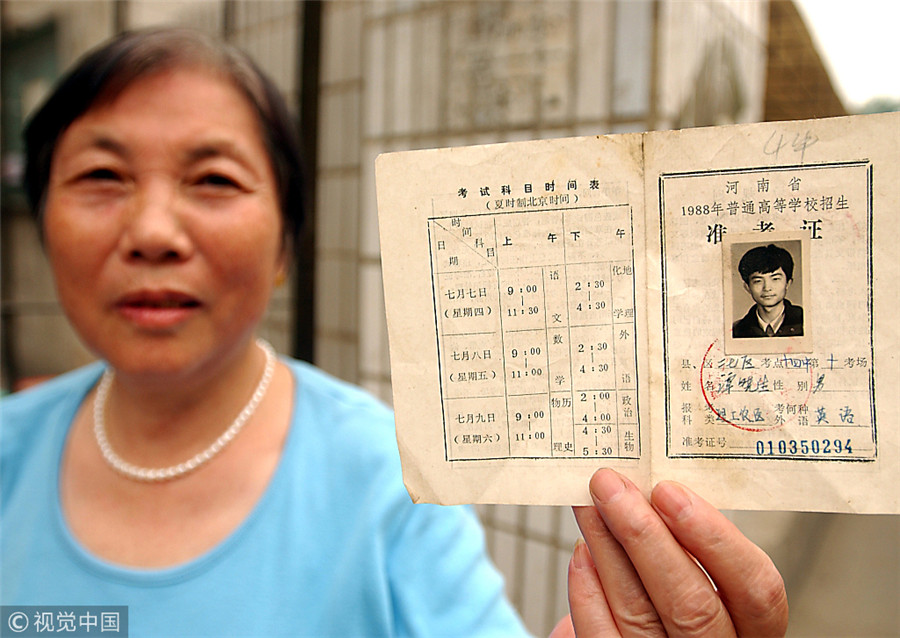 考试科目时间表
(夏时制北京时间)
时间
科目
日期
上午 下午
七月七日
(星期四)
9:00
11:30
语文
2:30
4:30
化学
地理
七月八日
(星期五)
9:00
11:00
数学
2:30
4:30
外语
七月九日
(星期六)
9:00
11:00
物理
历史
2:00
4:00
政治
4:30
5:30
生物
河南省
1988年普通高等学校招生
准考证
县、区 北区 考点 十四中 第十考场
姓名 性别 男
报考科类 理工农医 考何种外语 英语
准考证号 010350294
©视觉中国